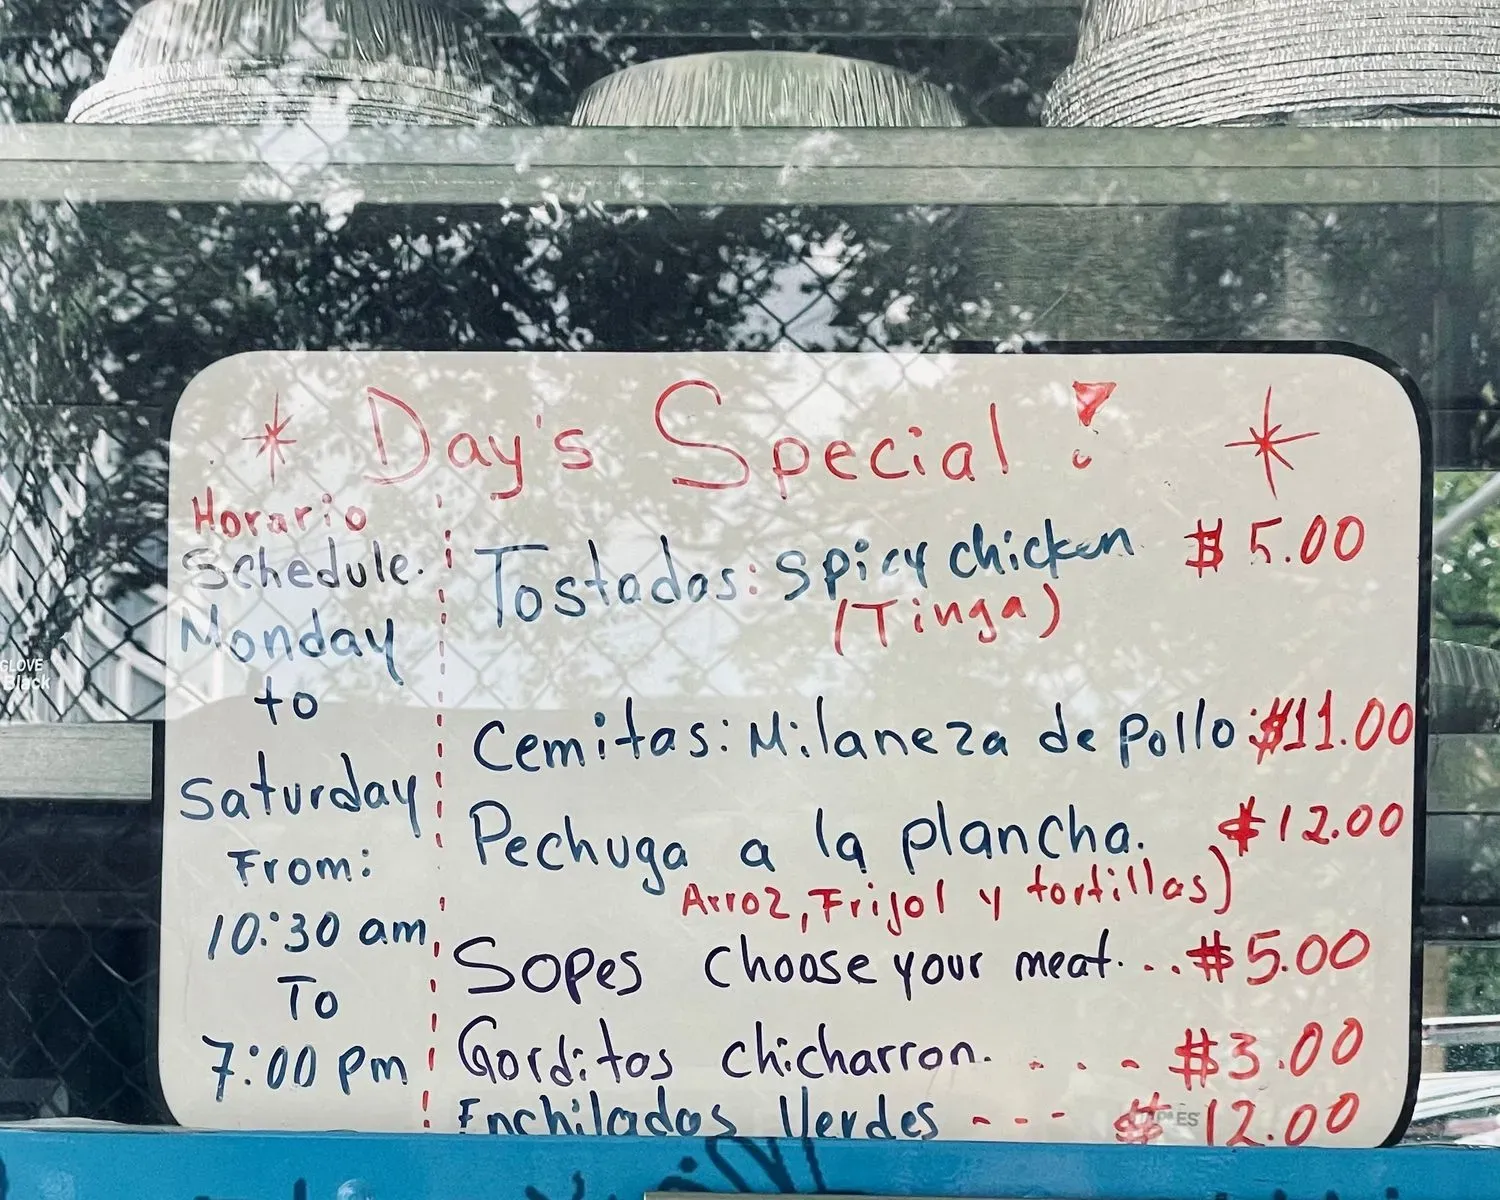 Day's Special !
Horario
Schedule.
Monday
to
Saturday
From:
10:30 am
To
7:00 pm
Tostadas: Spicy chicken $5.00
(Tinga)
Cemitas: Milaneza de pollo: $11.00
Pechuga a la plancha. $12.00
Arroz, Frijol y tortillas)
Sopes choose your meat... $5.00
Gorditas chicharron. . . - $3.00
Enchiladas Verdes - - - $12.00
GLOVE
Black